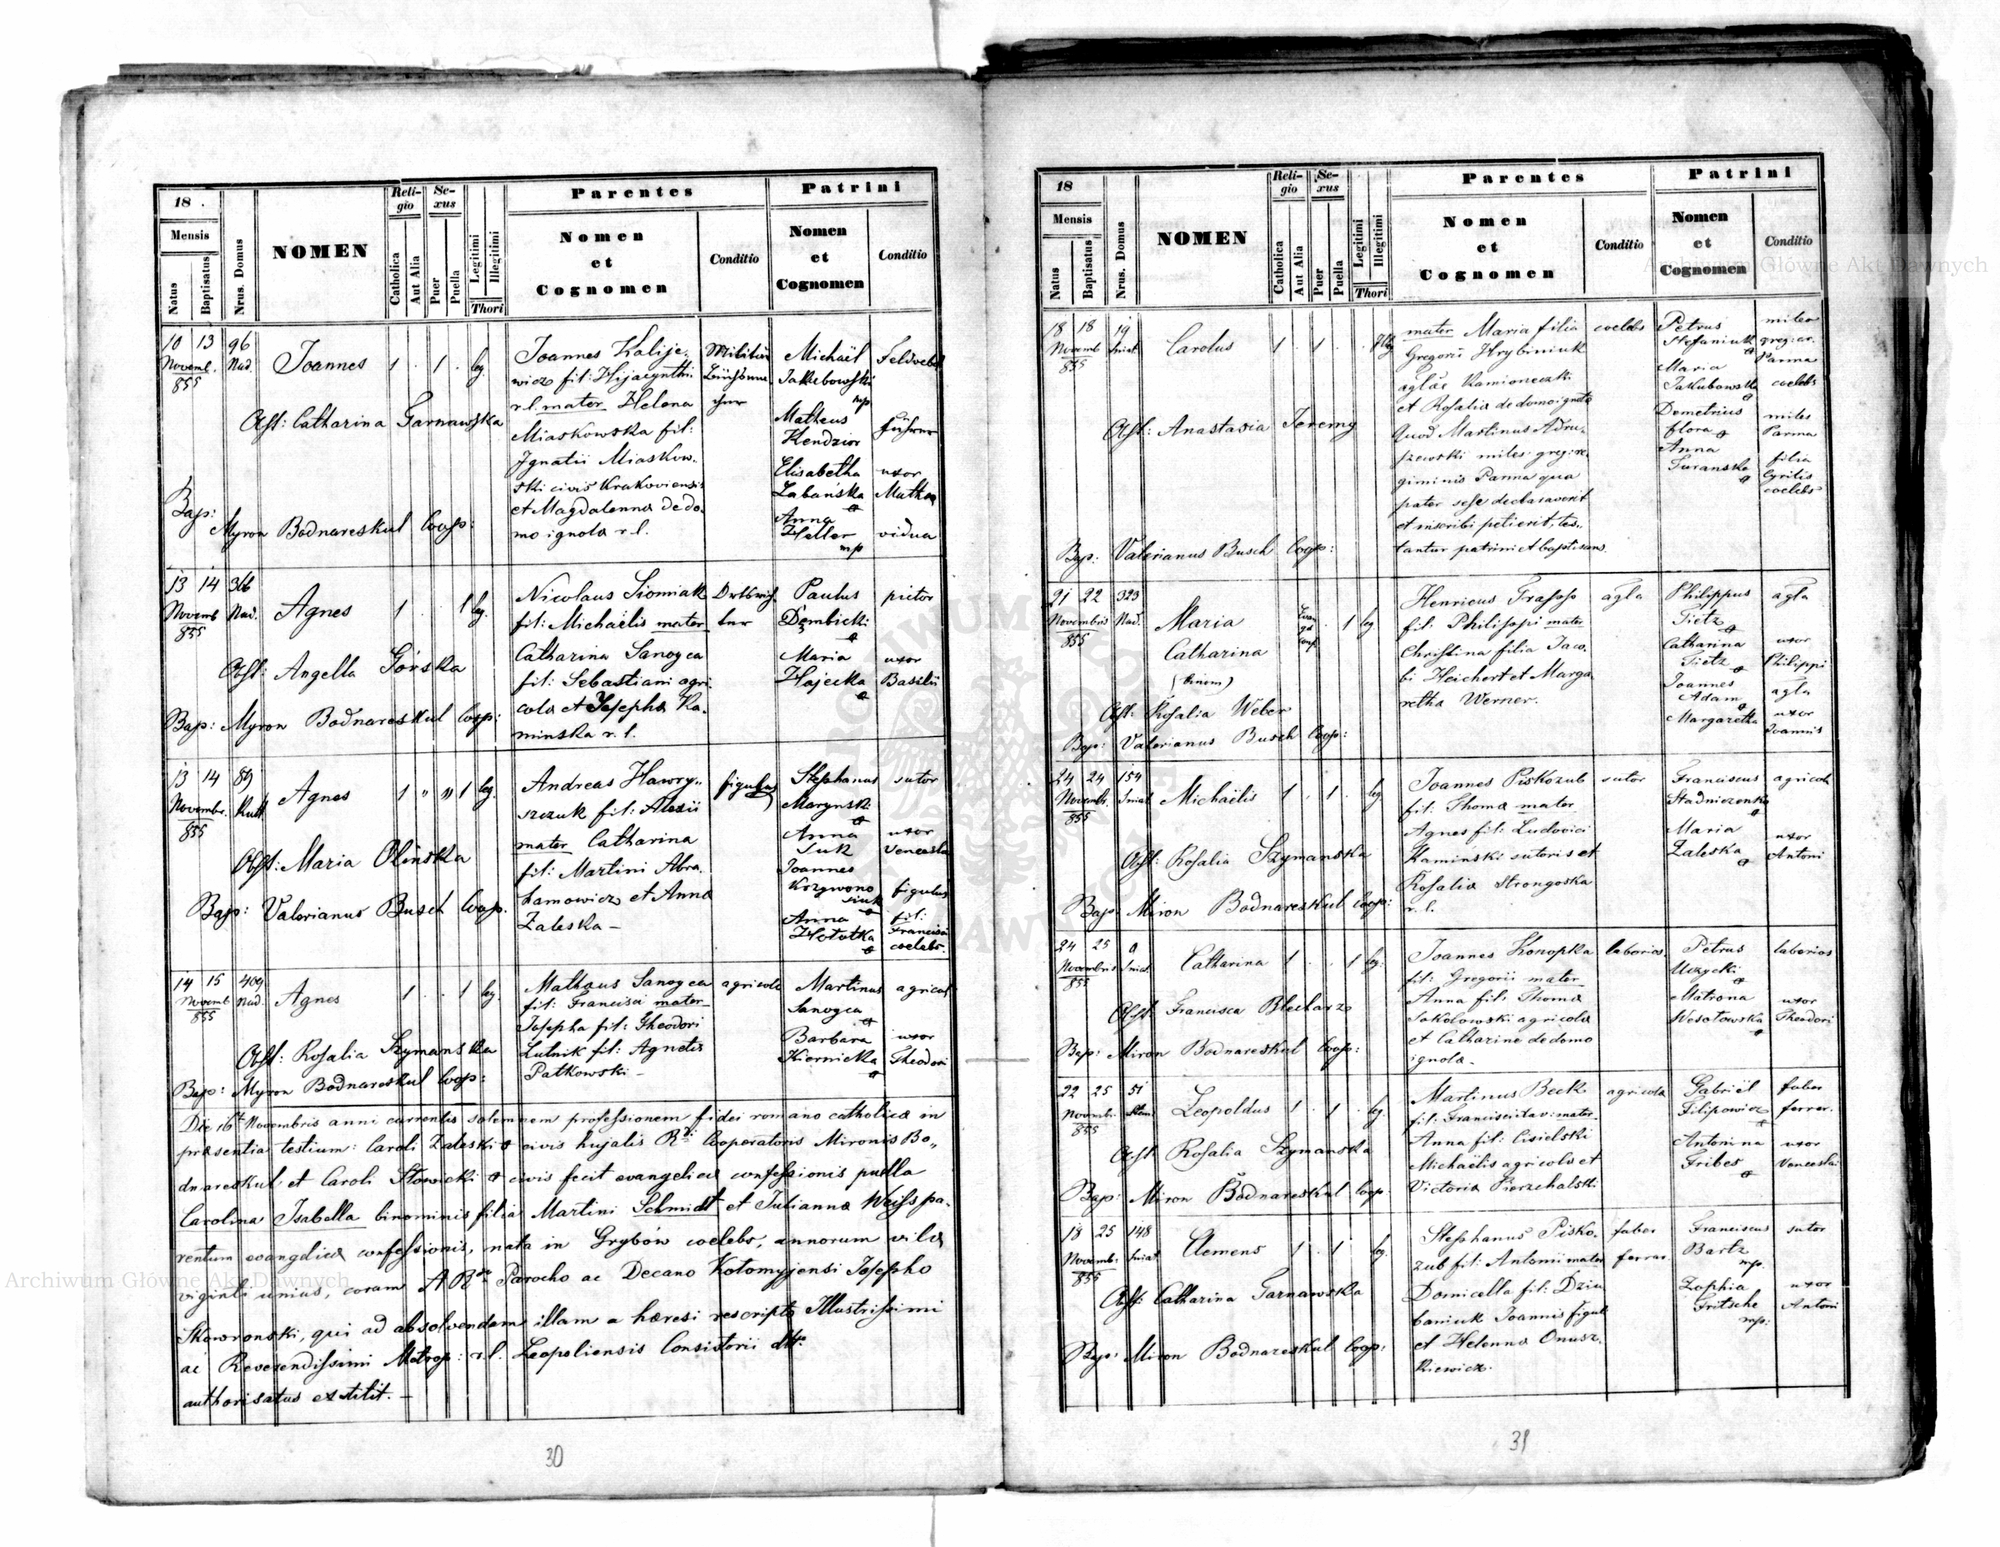 18 .
Mensis
Natus
Baptisatus
Nrus. Domus
NOMEN
Religio
Catholica
Aut Alia
Sexus
Puer
Puella
Legitimi
Illegitimi
Thori
Parentes
Nomen
et
Cognomen
Conditio
Patrini
Nomen
et
Cognomen
Conditio
10 13 96 Joannes 1 . 1 . leg.
Novemb. Nad.
855
Obst: Catharina Tarnawska
Bap:
Myron Bodnareskul Coop:
Joannes Kalije-
wicz fil: Hijacynthi
r.l. mater Helena
Miaskowska fil:
Ignatii Miaskow-
ski civis Krakoviensis
et Magdalenna de do-
mo ignota r.l.
Michaël Feldwebel
Jakubowski
mp
Matheus
Kendzior Führer
Elisabetha uxor
Labańska Mathei
Anna
Heller vidua
mp
13 14 366 Agnes 1 . . 1 leg.
Novemb Nad.
855
Obst: Angella Górska
Bap: Myron Bodnareskul Coop:
Nicolaus Siomiak
fil: Michaëlis mater
Catharina Sanoyca
fil: Sebastiani agri-
cola et Josepha Ka-
minska r.l.
Paulus pictor
Dembicki
Maria uxor
Hajecka Basilii
13 14 89 Agnes 1 " " 1 leg.
Novembr. Kutt
855
Obst: Maria Olinska
Bap: Valerianus Busch Coop.
Andreas Hawry-
szczuk fil: Alexii
mater Catharina
fil: Martini Abra-
hamowicz et Anna
Zaleska –
figulus
Stephanus sutor
Marynski
Anna uxor
Suk Venceslai
Joannes
Krzywono figulus
siuk
Anna fil:
Hototka Francisci
coelebs.
14 15 409 Agnes 1 . . 1 leg.
Novemb Nad.
855
Obst: Rosalia Szymanska
Bap: Myron Bodnareskul Coop:
Mathaus Sanoyca agricola
fil: Francisci mater
Josepha fil: Theodori
Lutnik fil: Agnetis
Patkowski –
Martinus agricola
Sanoyca
Barbara uxor
Kiernicka Theodori
Die 16t Novembris anni currentis solemnem professionem fidei romano catholica in
præsentia testium: Caroli Zaleski civis hujatis Rdi Cooperatoris Mironis Bo-
dnareskul et Caroli Stowicki civis fecit evangelica confessionis puella
Carolina Isabella binominis filia Martini Schmidt et Julianna Weiss pa-
rentum evangelica confessionis, nata in Grybów coelebs, annorum vita
viginti unius, coram A. R. Parocho ac Decano Kołomyjensi Josepho
Skowronski, qui ad absolvendam illam a hæresi rescripto Illustrissimi
ac Reverendissimi Metrop: r.l. Leopoliensis Consistorii
authorisatus extitit. –
30
18
Mensis
Natus
Baptisatus
Nrus. Domus
NOMEN
Religio
Catholica
Aut Alia
Sexus
Puer
Puella
Legitimi
Illegitimi
Thori
Parentes
Nomen
et
Cognomen
Conditio
Patrini
Nomen
et
Cognomen
Conditio
18 18 19 Carolus 1 . 1 . . Illeg
Novemb Sniat
855
Obst: Anastasia Jeremy
Bap: Valerianus Busch Coop:
mater Maria filia coelebs
Gregorii Hrybiniuk
aglæ Kamioneczki
et Rosalia de domo ignota
Quod Martinus Adru-
szewski miles greg: re-
giminis Parma qua
pater sese declaraverit
et inscribi petierit, tes-
tantur patrini et baptisans.
Petrus miles
Stefaniuk greg: ar.
Maria Parma
Jakubowska coelebs
Demetrius miles
Flora Parma
Anna filia
Turanska Cyrilis
coelebs
21 22 323 Maria . 1 leg
Novembris Nad.
855
Catharina
(binom)
Obst. Rosalia Weber
Bap: Valerianus Busch Coop:
Henricus Trasso agla
fil: Philippi mater
Christina filia Jaco-
bi Heichert et Marga-
retha Werner.
Philippus agla
Tietz
Catharina uxor
Tietz Philippi
Joannes agla
Adam
Margaretha uxor
Joannis
24 24 154 Michaëlis 1 . 1 . leg
Novembr. Sniat
855
Obst: Rosalia Szymanska
Bap: Miron Bodnareskul Coop:
Joannes Piskozub sutor
fil: Thoma mater
Agnes fil: Ludovici
Kaminski sutoris et
Rosalia Strongoska
r.l.
Franciscus agricola
Stadniczenko
Maria uxor
Zaleska Antoni
24 25 9 Catharina 1 . . 1 leg.
Novembris Sniat
855
Obst. Francisca Blecharz
Bap: Miron Bodnareskul Coop:
Joannes Konopka laborios.
fil: Gregorii mater
Anna fil: Thoma
Sokolowski agricola
et Catharine de domo
ignota –
Petrus laborios
Uczycki
Matrona uxor
Wesotowska Theodori
22 25 51 Leopoldus 1 . 1 . leg
Novemb.
855
Obst Rosalia Szymanska
Bap: Miron Bodnareskul Coop
Martinus Beck agricola
fil: Francisci mater
Anna fil: Cisielski
Michaëlis agricola et
Victoria Pierzchalski
Gabriël faber
Filipowicz ferrar.
Antonina uxor
Gribes Venceslai
18 25 148 Clemens 1 . 1 . leg.
Novemb: Sniat
855
Obst: Catharina Tarnawska
Bap: Miron Bodnareskul Coop:
Stephanus Pisko- faber
zub fil: Antonii mater ferrar.
Domicella fil: Dziu
baniuk Joannis figuli
et Helenna Onusz-
kiewicz.
Franciscus sutor
Bartz
mp.
Zophia uxor
Fritsche Antoni
mp:
31
Archiwum Główne Akt Dawnych
Archiwum Główne Akt Dawnych